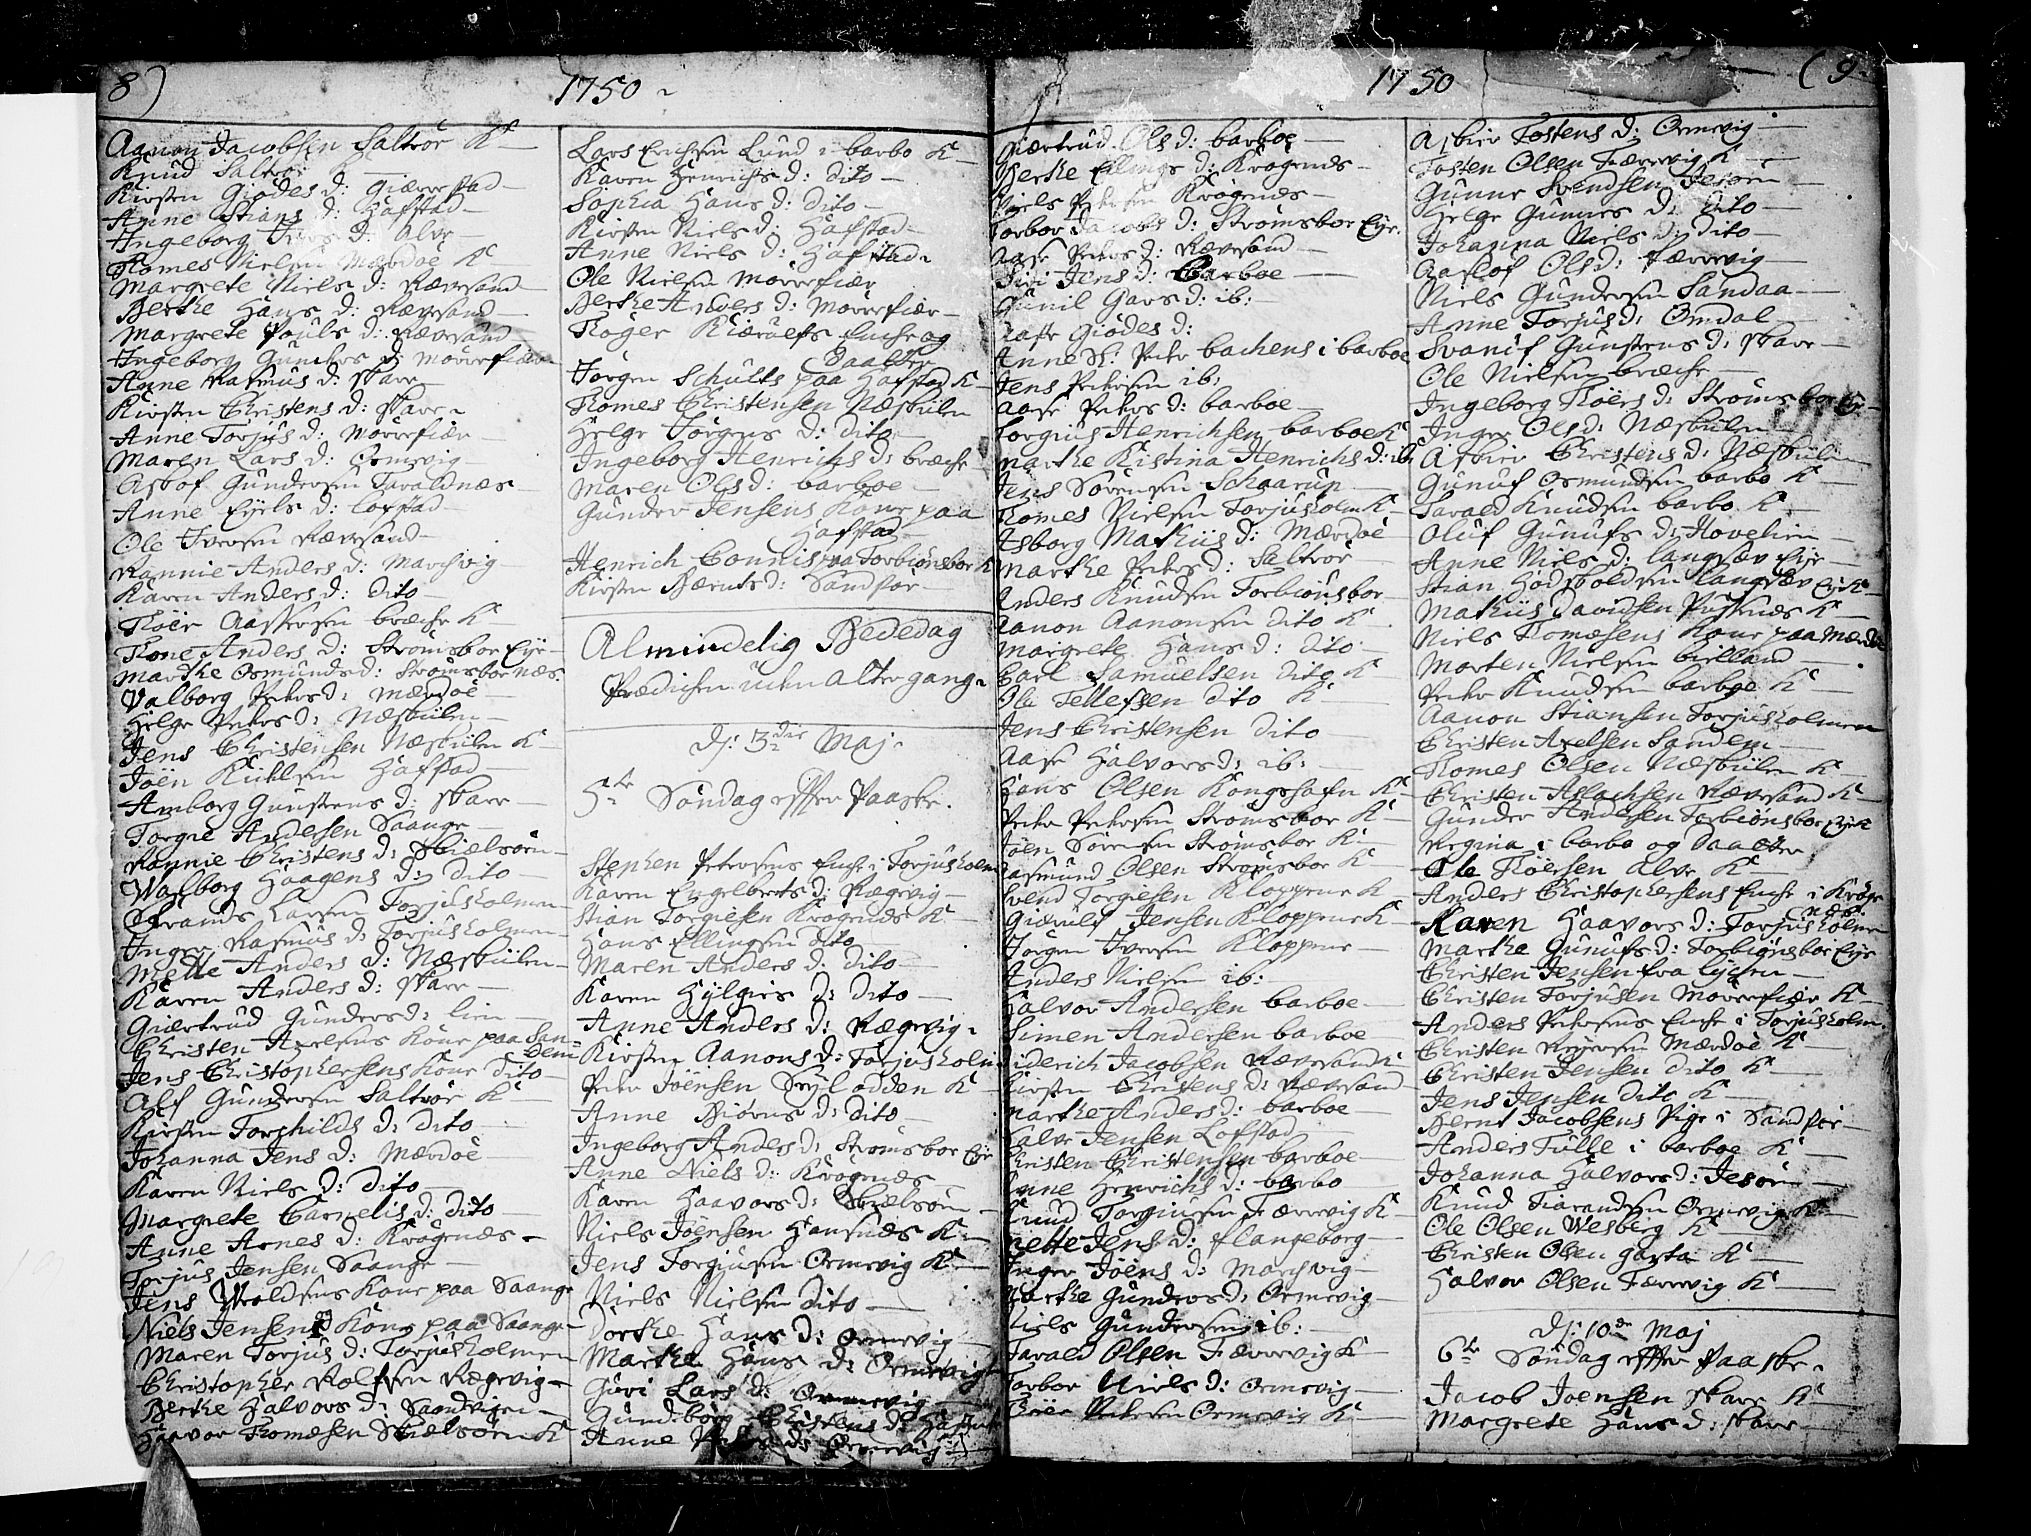 8)
1750
Aanon Jacobsen Saltrör K
Knud Saltrör K
Kirsten Giödes d: Giærrestad
Anne Stians d: Hafstad
Ingeborg d: Alve
Tomes Nielsen Mærdöe K
Margrete Niels d: Rævesand
Berthe Hans d: Rævesand
Margrete Pouls d: Rævesand
Ingeborg Gunders d: Morrefiær
Anne Rasmus d: Skare
Kirsten Christens d: Skare
Anne Torjus d: Morrefiær
Maren Lars d: Ormevig
Aslof Gundersen Taraldnæs
Anne Eyels d: Lofstad
Ole Iversen Rævesand
Rannie Anders d: Marchvig
Karen Anders d: dito
Töer Aassersen bræche K
Tone Anders d: Strömsboe Eye
Marthe Osmunds d: Strömsboe næs
Valborg Peters d: Mærdöe
Helge Peters d: Næskiilen
Jens Christensen Næskiilen K
Joen Kittelsen Hafstad
Amborg Gunstens d: Skare
Torgie Andersen Saange
Rannie Christens d: Skielsöen
Walborg Haagens d: dito
Larsen Torjusholmen
Inger Rasmus d: Torjusholmen
Mette Anders d: Næskiilen
Karen Anders d: Skare
Giertrud Gunders d: Lien
Christen Axelsens Kone paa San-
dem
Jens Christophersens Kone dito
Alf Gundersen Saltrör K
Kirsten Torchilds d: dito
Johanna Jens d: Mærdöe
Karen Niels d: dito
Margrete Cornelis d: dito
Anne Arnes d: Krögenæs
Torjus Jensen Saange
Jens Kone paa Saange
Niels Jensens Kone paa Saange
Maren Torjus d: Torjusholmen
Christopher Rolfsen Rægevig
Berthe Halvors d: Sandvigen
Haavor Tomesen Skielsöen K
Lars Erichsen Lund i barbo K
Karen Henrichs d: dito
Sophia Hans d: dito
Kirsten Niels d: Hafstad
Anne Niels d: Hafstad
Ole Nielsen Morrefiær
Berthe Anders d: Morrefiær
Röger Kiærulfs Enche og
Daatter
Jörgen Schults paa Hafstad K
Tomes Christensen Næskiilen
Helge Jörgens d: dito
Ingeborg Henrichs d: bræche
Maren Ols d: barboe
Gunder Jensens Kone paa
Hafstad
Henrich Connis paa Torbiönsboe K
Kirsten Bærnts d: Sandföe
Almindelig Bededag
Prædichen uden altergang
Dj: 3die Maj
5te Söndag effter Paaske.
Stephen Petersens Enche i Torjusholm
Karen Engelberts d: Rægevig
Stian Torgiesen Krögenæs K
Hans Ellingsen dito
Maren Anders d: dito
Karen Hylgies d: dito
Anne Anders d: Rægevig
Kirsten Aanons d: Torjusholm
Peder Jöensen Seyl odden K
Anne Biörns d: dito
Ingeborg Anders d: Strömsboe Eye
Anne Niels d: Krögenæs
Karen Haavors d: Skielsöen
Niels Jöensen Hansnæs K
Jens Torgiusen Ormevig K
Niels Nielsen dito
Dorthe Hans d: Ormevig
Marthe Hans d: Ormevig
Guri Lars d: Ormevig
Gundborg Christens d: Hafstad
Anne Peders d: Ormevig
1750
(9
Giærtrud Ols d: barboe
Berthe Ellings d: Krogenæs
Niels Petersen Krögenæs
Torbor Jacobs d: Strömsboe Eye
Aase Peters d: Rævesand
Siri Jens d: Barboe
Gunil Gars d: ib:
Aase Giödes d:
Anne Sl: Peder bachens i barboe
Jens Petersen ib:
Aase Peters d: barboe
Torgius Henrichsen barboe K
Marthe Kistina Henrichs d: ib
Jens Sörensen Schaarup
Tomes Nielsen Torjusholm K
Isborg Mathiis d: Mærdöe
Marthe Peters d: Saltröe
Anders Knudsen Torbiönsboe
Aanon Aanonsen dito K
Margrete Hans d: dito
Carl Samuelsen dito K
Ole Tellefsen dito K
Jens Christensen dito
Aase Halvors d: ib:
Hans Olsen Kongshafn K
Peder Pedersen Strömsboe K
Jöen Sörensen Strömsboe K
Aasmund Olsen Strömsboe K
Svend Torgiesen Kloppene K
Giæruls Jensen Kloppene K
Jörgen Iversen Kloppene
Anders Nielsen ib:
Halvor Andersen barboe
Simen Andersen barboe
Diderich Jacobsen Rævesand K
Kirsten Christens d: Rævesand
Marthe Anders d: barboe
Halve Jensen Lofstad
Christen Christensen barboe
Anne Henrichs d: barbo
Knud Torgiusen Færrevig K
Mette Jens d: Flangeborg
Inger Jöens d: Marchvig
Marthe Gunders d: Ormevig
Niels Gundersen ib:
Tarald Olsen Færrevig K
Torbor Niels d: Ormevig
Töer Petersen Ormevig K
Asbiör Tostens d: Ormevig
Tosten Olsen Færrevig K
Gunne Svendsen Jesöen
Helge Gunnes d: dito
Johanna Niels d: dito
Aaslof Ols d: Færrevig
Niels Gundersen Sandaa
Anne Torjus d: Omdal
Svanif Gunstens d: Skare
Ole Nielsen bræche
Ingeborg Töers d: Strömsboe Eye
Inger Ols d: Næskiilen
Asbiör Christens d: Næskiilen
Gunuf Osmundsen barbo K
Tarald Knudsen barbo K
Oluf Gunufs d: Hovelien
Anne Niels d: Langsæv Eye
Stian Hodskoldsen Langsæv Eye K
Mathiis Davidsen Puskenæs K
Niels Tomesens Kone paa Mærdöe
Morten Nielsen birlland
Peder Knudsen barboe K
Aanon Stiansen Torjusholmen
Christen Axelsen Sandem
Tomes Olsen Næskiilen K
Christen Aslachsen Rævesand K
Gunder Andersen Torbiönsboe Eye K
Regina i barbo og Daatter
Ole Töersen Alve K
Anders Christophersens Enche i Kröge
næs.
Karen Haavors d: Torjusholm
Marthe Gunufs d: Torbiönsboe Eye
Christen Jensen fra Lychen
Christen Torjusen Morrefiær K
Anders Petersens Enche i Torjusholm
Christen Reyersen Mærdöe K
Christen Jensen dito K
Jens Jensen dito K
Bernt Jacobsens Pige i Sandföe
Anders Tulle i barboe K
Johanna Halvors d: Jesöen
Knud Tiarandsen Ormevig K
Ole Olsen Wesberg K
Christen Olsen Garta K
Halvor Olsen Færrevig K
Dj: 10de Maj
6te Söndag effter Paaske
Jacob Joensen Skare K
Margrete Hans d: Skare